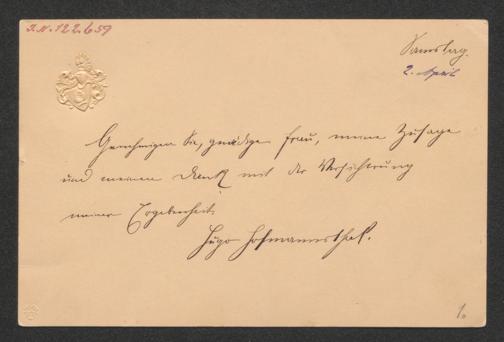 I.N. 122.659
Samstag.
2. April
Genehmigen Sie, gnädige Frau, meine Zusage
und meinen Dank mit der Versicherung
meiner Ergebenheit
Hugo Hofmannsthal.
1.